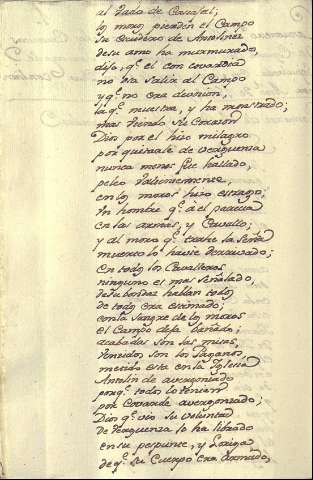 al Vado de Cascajal;
los moros pierden el Campo
Su Escudero de Antolinez
de su amo ha murmurado,
dijo, q.e el con covardia
no era salir al Campo
y q.e no era devocion,
la q.e muestra, y ha mostrado;
mas viendo su Corazon
Dios por el hizo milagro
por quitarle de verguenza
nunca menos fue hallado,
peleo valientemente,
en los moros hizo estrago;
Un hombre q.e a el parecia
en las armas, y Cavallo;
y al moro q.e trahe la Seña
muerto lo havie derrivado;
En todos los Cavalleros
ninguno es mas señalado,
de su bondad hablan todos
de todos era estimado;
con la sangre de los moros
el Campo deja bañado;
acabadas son las misas,
vencidos son los Paganos,
metido esta en la Iglesia
Antolin de avergonzado
porq.e todos lo tenian
por Covarde avergonzado;
Dios q.e vio su voluntad
de verguenza lo ha librado
en su perpunte, y Loriga
de q.e su Cuerpo era armado,